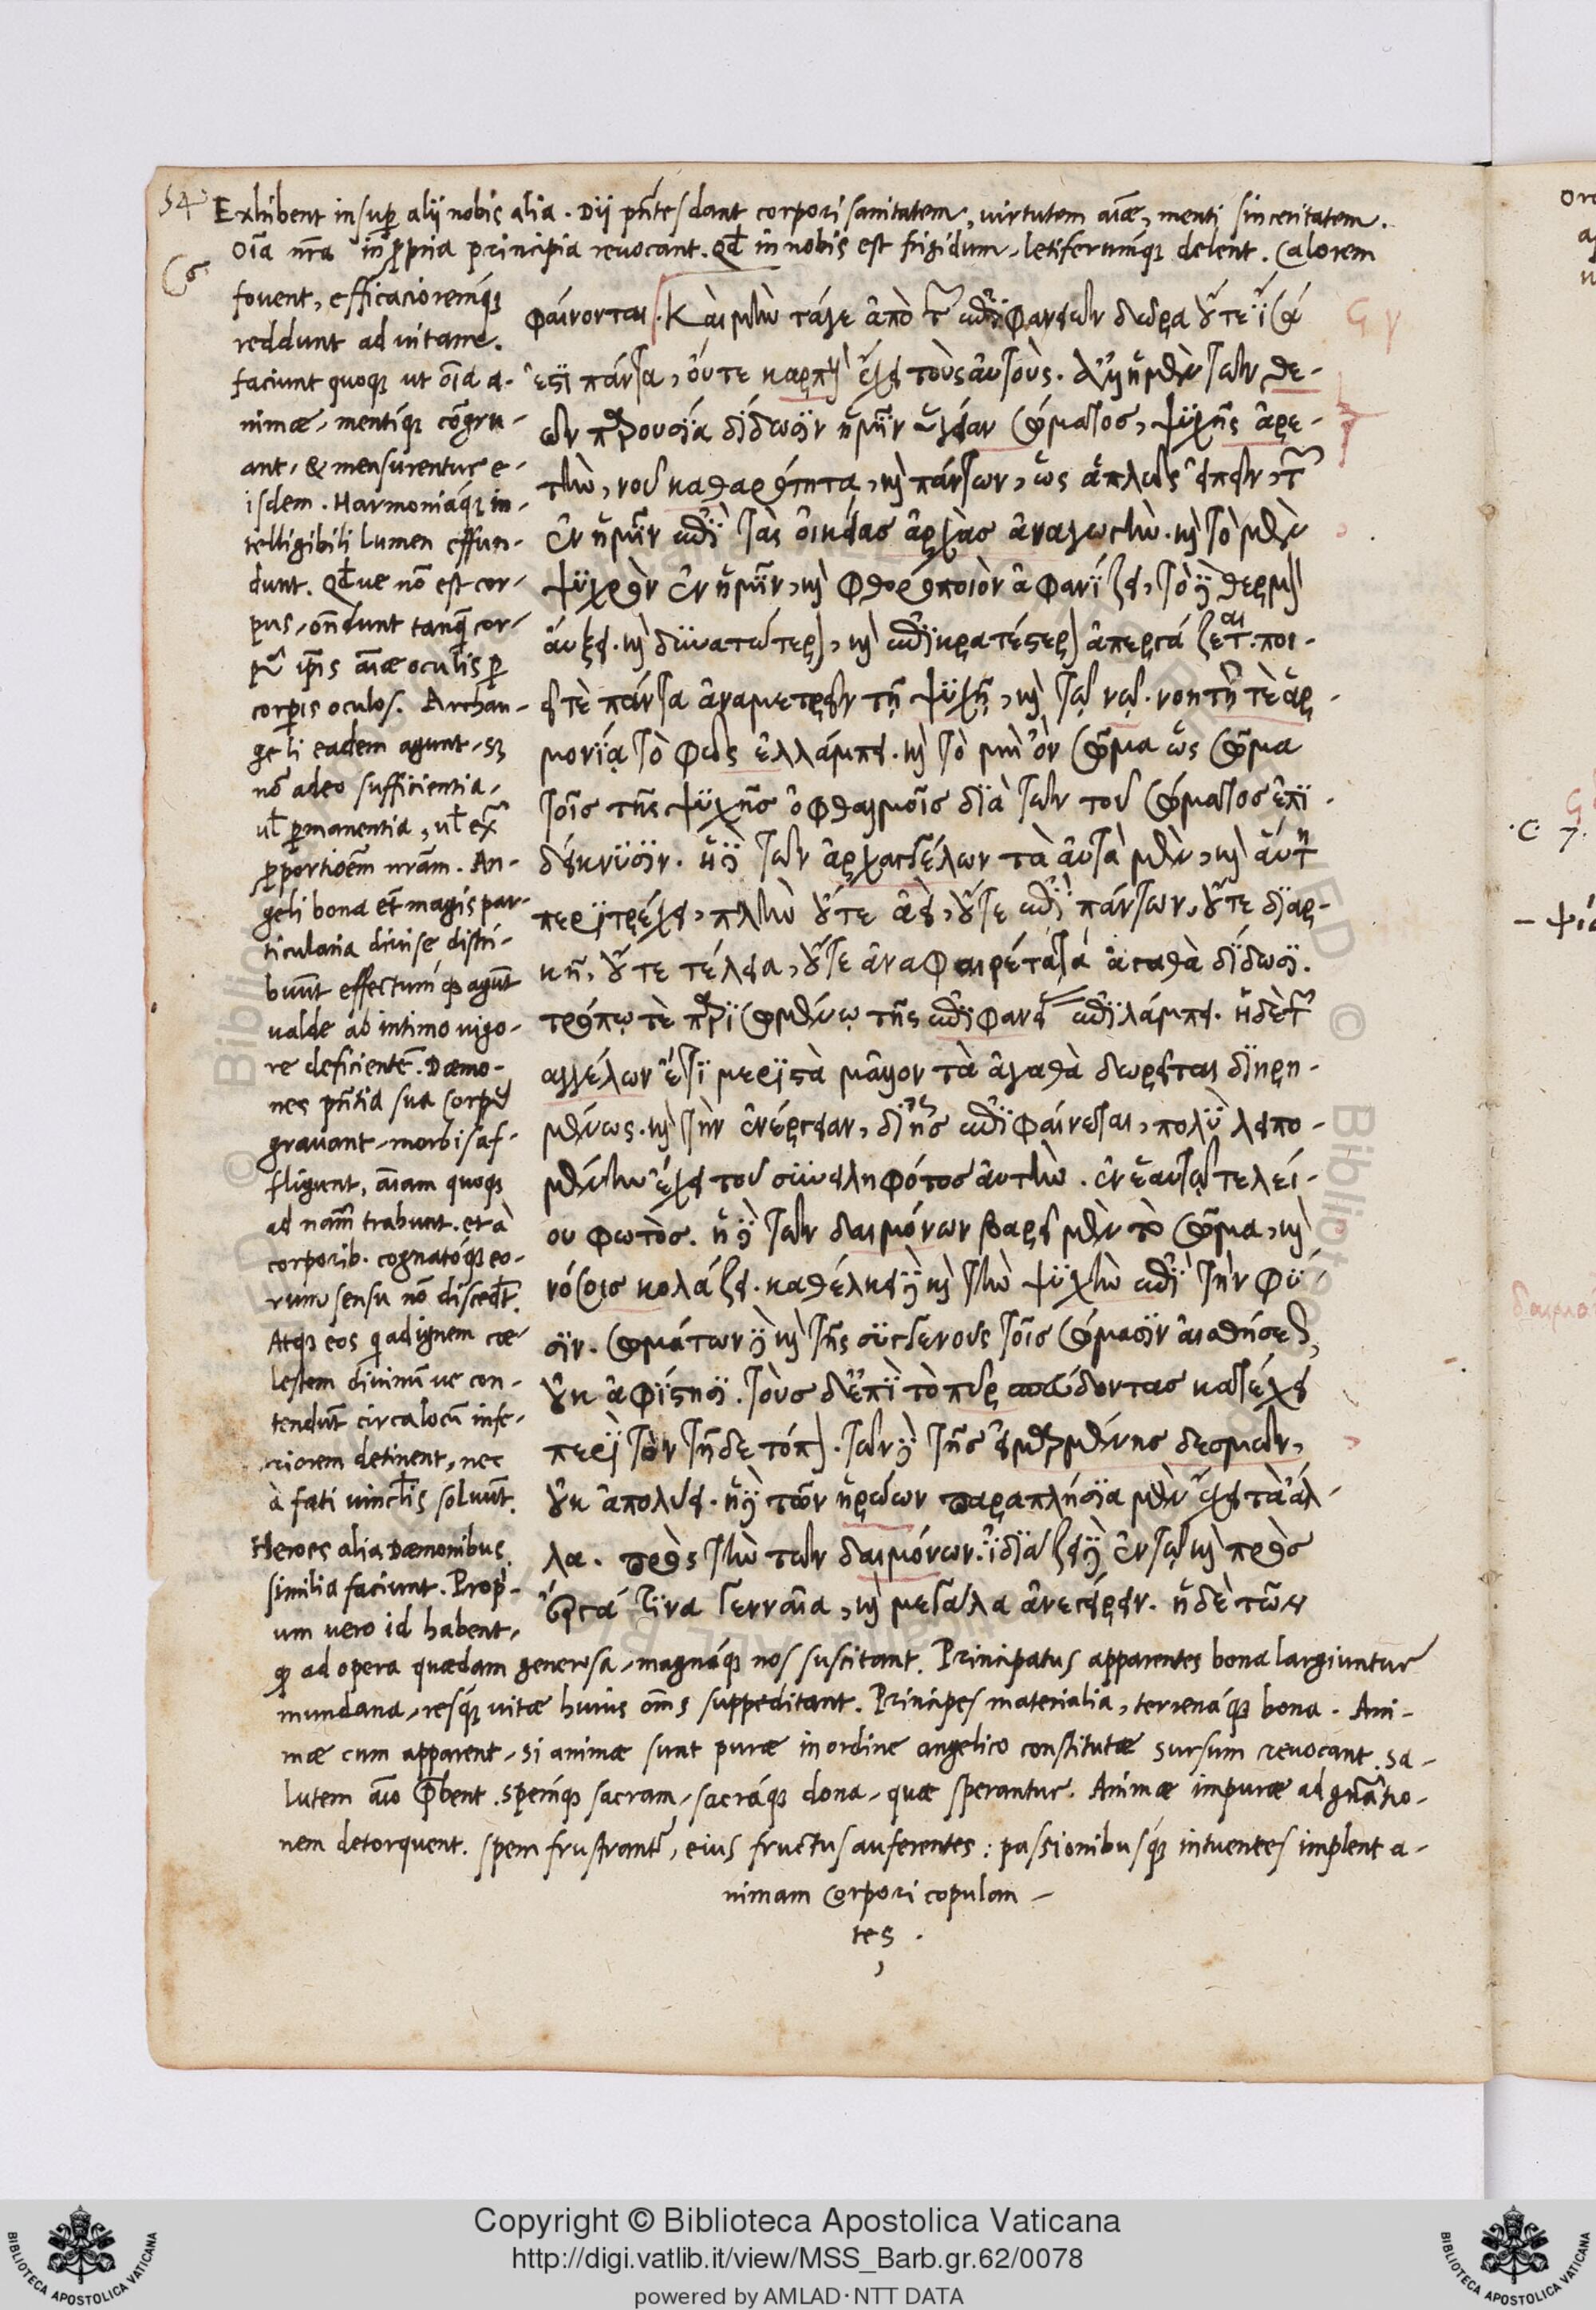 54
Exhibent insup alij nobis alia. Dij pñtes dant corpori sanitatem, virtutem aĩæ, menti sinceritatem.
Oĩa nr̃a in propria principia revocant. Qđ in nobis est frigidum, letiferumq́ue delent. Calorem
fouent, efficacioremq́ue
reddunt ad vitam.
faciunt quoque ut oĩa a-
nimæ, mentíque cõgru-
ant, & mensurentur e-
isdem. Harmoniáque in-
telligibili lumen effun-
dunt. Qđue nõ est cor-
pus, oñdunt tanq̃ cor-
p9 ip̃is aĩæ oculis per
corporis oculos. Archan-
geli eadem agunt, sȝ
nõ adeo sufficientia,
ul̃ permanentia, ul̃ ex
proportiõem nr̃am. An-
geli bona et̃ magis par-
ticularia diuise distri-
buũt effectumq́ue agũt
valde ab intimo uigo-
re deficientẽ. Dæmo-
nes pñtia sua corpus
grauant, morbis af-
fligunt, aĩam quoque
ad natũ trahunt. et à
corporib. cognatóque eo-
rum sensu nõ discedũt.
Atque eos qui ad ignem cœ-
lestem diuinũue con-
tendũt circa locũ infe-
riorem detinent, nec
à fati vinclis soluũt.
Heroes alia Dæmonibus
similia faciunt. Propri-
um uero id habent,
φαίνονται. Καὶ μὴν τάγε ἀπὸ τῶν ἐπιφανειῶν δῶρα οὔτε ἴσα
ἐστὶ πάντα, οὔτε καρποὺς ἔχει τοὺς αὐτούς. ἀλλ' ἡ μὲν τῶν θε-
ῶν παρουσία δίδωσιν ἡμῖν ὑγείαν σώματος, ψυχῆς ἀρε-
τὴν, νοῦ καθαρότητα, καὶ πάντων, ὡς ἁπλῶς εἰπεῖν, τῶν
ἐν ἡμῖν ἐπὶ τὰς οἰκείας ἀρχὰς ἀναγωγὴν. καὶ τὸ μὲν
ψυχρὸν ἐν ἡμῖν, καὶ φθοροποιὸν ἀφανίζει, τὸ δὲ θερμὸν
αὔξει. καὶ δυνατώτερον, καὶ ἐπικρατέστερον ἀπεργάζεται. ποι-
εῖ τὲ πάντα ἀναμετρεῖν τῇ ψυχῇ, καὶ τῷ νῷ. νοητῇ τὲ ἁρ-
μονίᾳ τὸ φῶς ἐλλάμπει. καὶ τὸ μὴ ὂν σῶμα ὡς σῶμα
τοῖς τῆς ψυχῆς ὀφθαλμοῖς διὰ τῶν τοῦ σώματος ἐπι-
δείκνυσιν. ἡ δὲ τῶν ἀρχαγγέλων τὰ αὐτὰ μὲν, καὶ αὐτὴ
περιτρέχει, πλὴν οὔτε ἀεὶ, οὔτε ἐπὶ πάντων, οὔτε διαρ-
κῆ, οὔτε τέλεια, οὔτε ἀναφαιρέτα τὰ ἀγαθὰ δίδωσι.
τρόπῳ τὲ παρισωμένῳ τῆς ἐπιφανεί ἐπιλάμπει. ἡ δὲ τῶν
ἀγγέλων ἔτι μεριστὰ μᾶλλον τὰ ἀγαθὰ δωρεῖται διηρη-
μένως. καὶ τὴν ἐνέργειαν, δι' ἧς ἐπιφαίνεται, πολὺ λειπο-
μένην ἔχει τοῦ συνειληφότος αὐτὴν. ἐν ἑαυτῷ τελεί-
ου φωτὸς. ἡ δὲ τῶν δαιμόνων βαρεῖ μὲν τὸ σῶμα, καὶ
νόσοις κολάζει. καθέλκει δὲ καὶ τὴν ψυχὴν ἐπὶ τὴν φύ-
σιν. σωμάτων δὲ καὶ τῆς συγγενοῦς τοῖς σώμασιν αἰσθήσεως,
οὐκ ἀφίστησι. τοὺς δ' ἐπὶ τὸ πῦρ σπεύδοντας κατέχει
περὶ τὸν τῇδε τόπον. τῶν δὲ τῆς εἱμαρμένης δεσμῶν,
οὐκ ἀπολύει. ἡ δὲ τῶν ἡρώων παραπλήσια μὲν ἔχει τὰ ἄλ-
λα. πρὸς τὴν τῶν δαιμόνων. ἰδιάζει δὲ ἐν τῷ καὶ πρὸς
ἔργά τινα γενναῖα, καὶ μεγάλα ἀνεγείρειν. ἡ δὲ τῶν
q̃ ad opera quædam generosa, magnáque nos suscitant. Principatus apparentes bona largiuntur
mundana, resq́ue vitæ huius oñis suppeditant. Principes materialia, terrenáque bona. Ani-
mæ cum apparent, si animæ sunt puræ in ordine angelico constitutæ sursum revocant, sa-
lutem aĩo præbent. spemq́ue sacram, sacráque dona, quæ sperantur. Animæ impuræ ad gñatio-
nem detorquent. spem frustrant̃, eius fructus auferentes: passionibusq́ue intuentes implent a-
nimam corpori copulan-
tes.
Copyright © Biblioteca Apostolica Vaticana
http://digi.vatlib.it/view/MSS_Barb.gr.62/0078
powered by AMLAD · NTT DATA